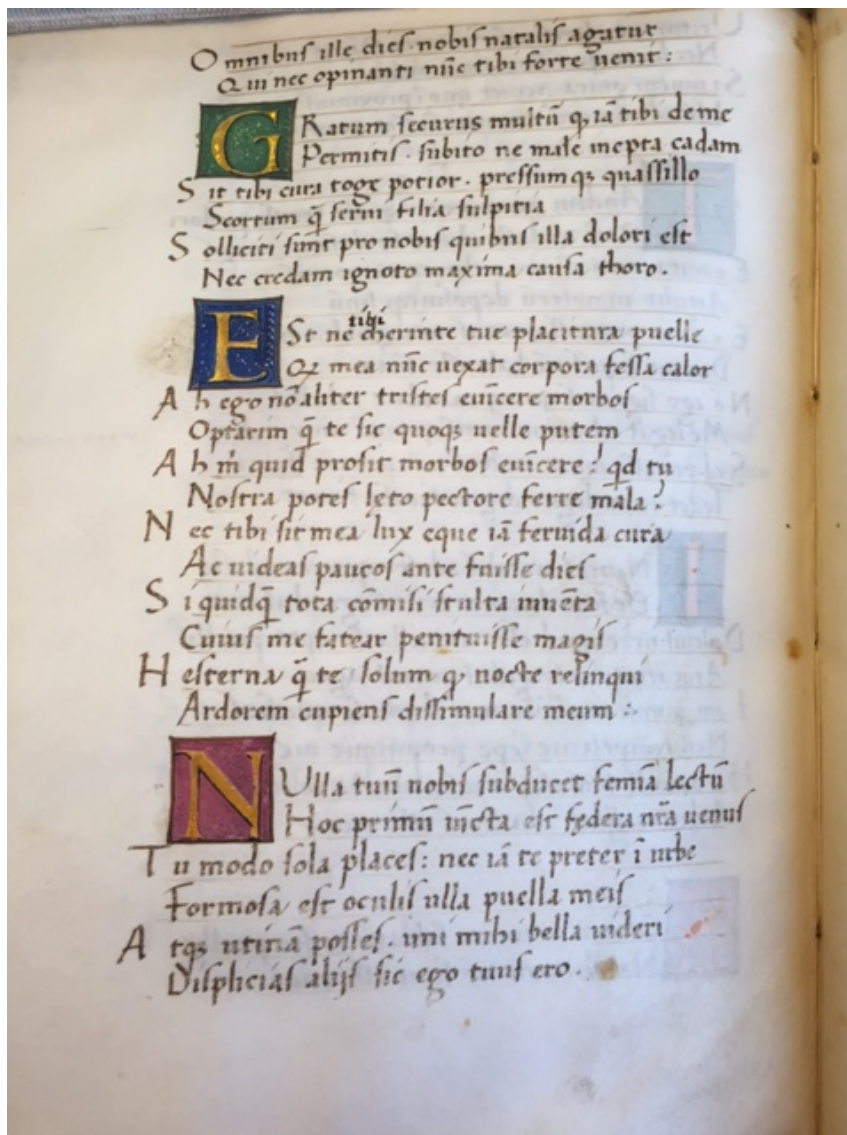 O mnibus ille dies nobis natalis agatur
Qui nec opinanti nūc tibi forte uenit:
GRatum securus multū q, iā tibi de me
Permitis. subito ne male inepta cadam
S it tibi cura togę potior. pressumq; quassillo
Scortum q̄ serui filia sulpitia
S olliciti sunt pro nobis quibus illa dolori est
Nec credam ignoto maxima causa thoro.
tibi
ESt ne cherinte tue placitura puelle
Q mea nūc uexat corpora fessa calor
A h ego nō aliter tristes euīcere morbos
Optarim q̄ te sic quoq; uelle putem
A h m̄ quid prosit morbos euīcere? qd tu
Nostra potes lęto pectore ferre mala?
N ec tibi sit mea lux eque iā feruida cura
Ac uideas paucos ante fuisse dies
S i quidq̄ tota cōmisi stulta iuuēta
Cuius me fatear penituisse magis
H esterna q̄ te solum q, nocte relinqui
Ardorem cupiens dissimulare meum:
NUlla tuū nobis subducet femīa lectū
Hoc primū iūcta est fędera nr̄a uenus
T u modo sola places: nec iā te preter ī urbe
Formosa est oculis ulla puella meis
A tq; utinā posses. uni mihi bella uideri
Displicias alijs sic ego tuus ero.